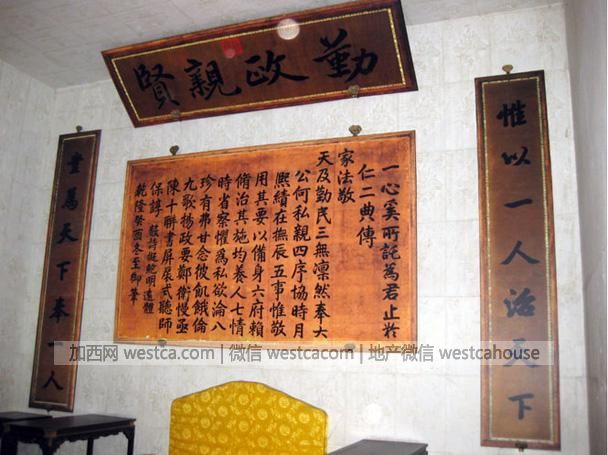 勤政親賢
惟以一人治天下
豈為天下奉一人
一心奚所託為君止於
仁二典傳
家法敬
天及勤民三無凛然奉大
公何私親四序協時月
熈績在撫辰五事惟敬
用其要以備身六府賴
脩治其施均養人七情
時省察懼為私欲淪八
珍有弗甘念彼飢餓倫
九歌揚政要鄭衛慢亟
陳十聯書屏扆式聽師
保諄 數詩儗鮑明遠體
乾隆癸酉冬至御筆
加西网 westca.com | 微信 westcacom | 地产微信 westcahouse